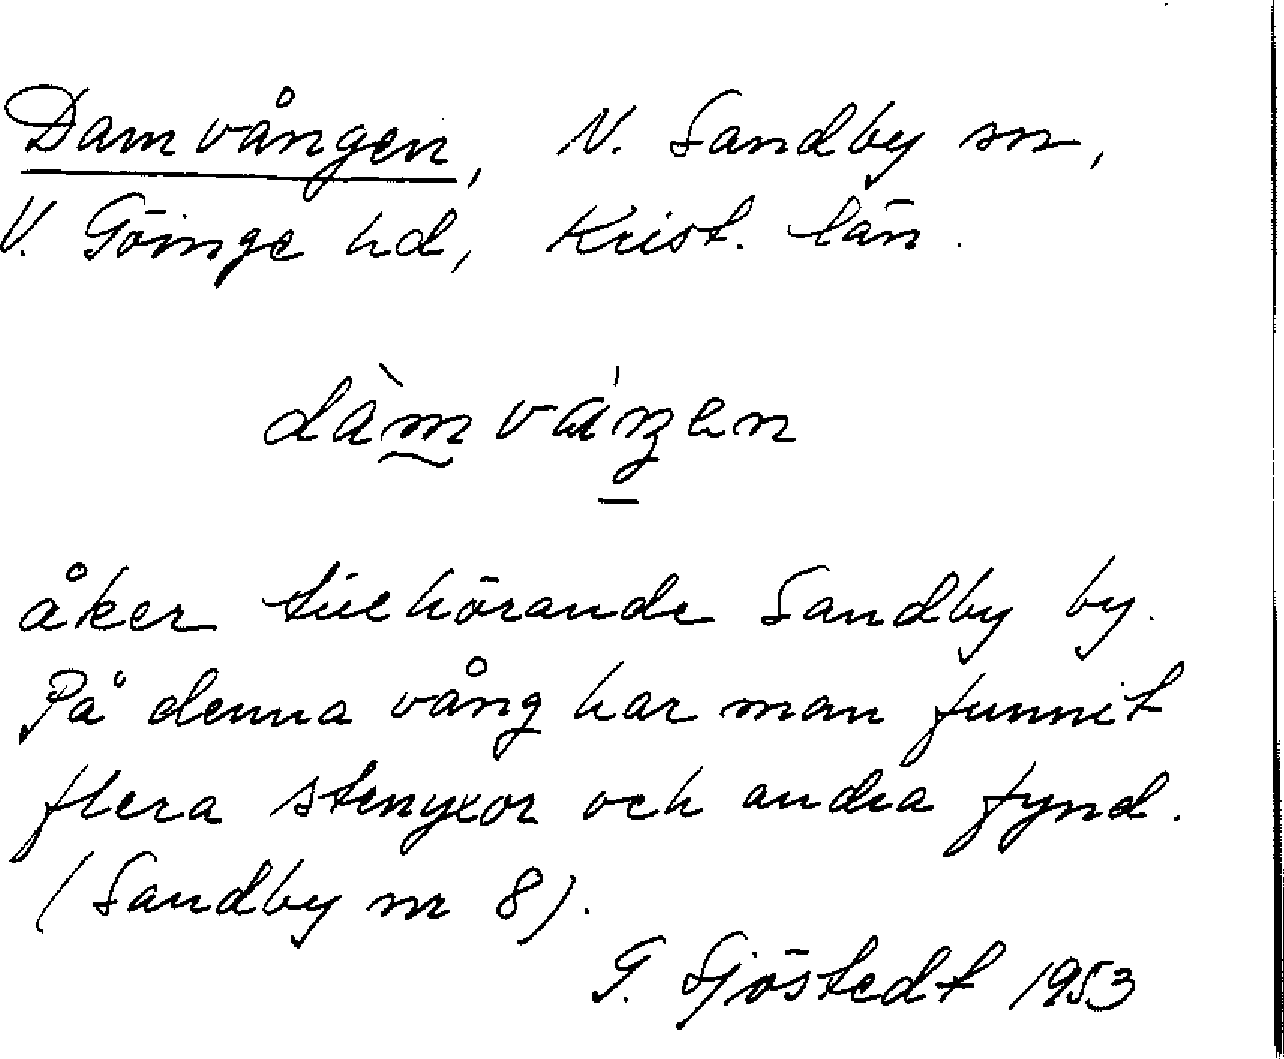 Damvången, N. Sandby sn,
V. Göinge hd, Krist. län.
dàmváŋen
åker tillhörande Sandby by.
På denna vång har man funnit
flera stenyxor och andra fynd.
(Sandby nr 8).
G. Sjöstedt 1953